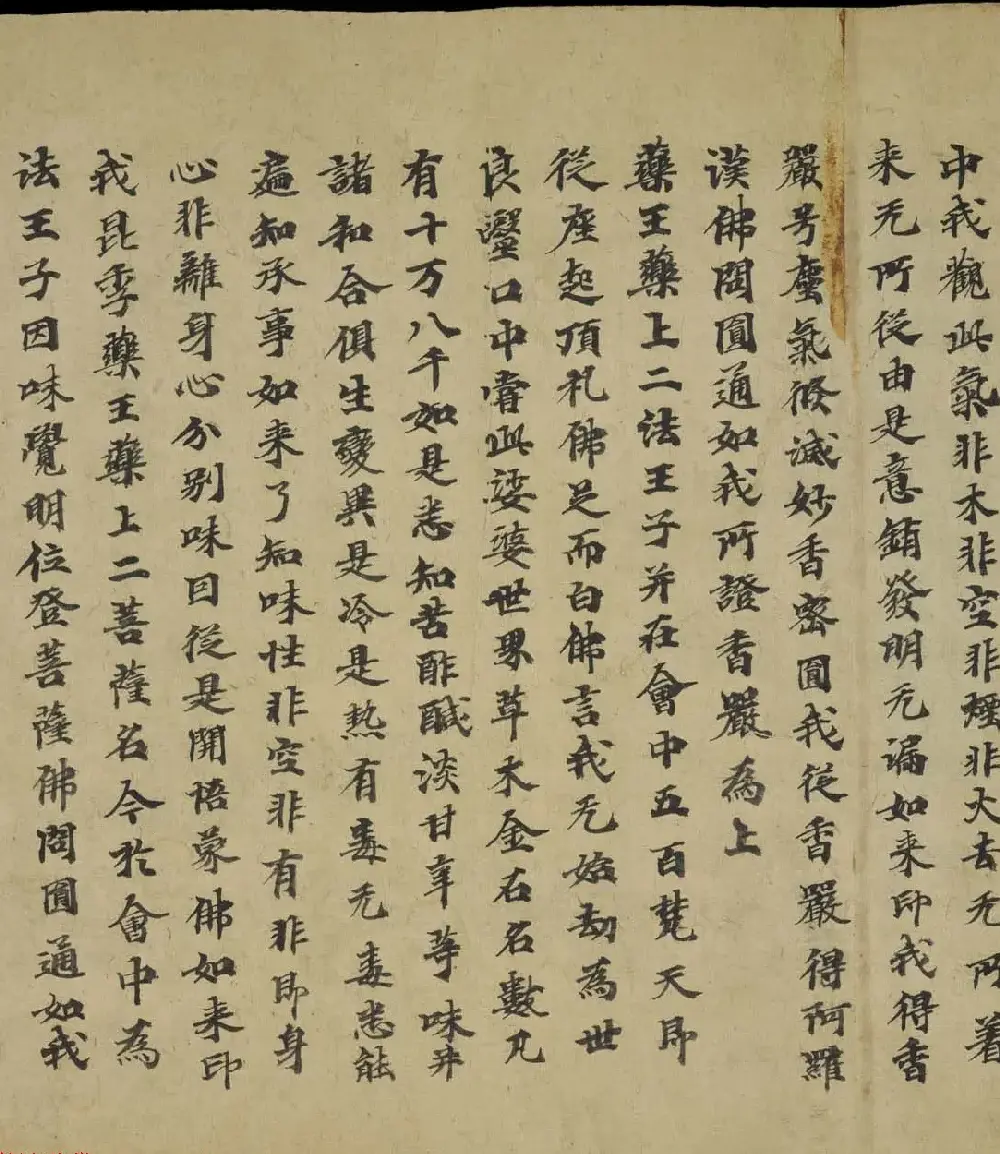 中我觀此氣非木非空非煙非火去无所著
来无所従由是意銷發明无漏如来印我得香
嚴号塵氣倏滅妙香密圓我従香嚴得阿羅
漢佛問圓通如我所證香嚴為上
藥王藥上二法王子并在會中五百梵天即
従座起頂礼佛足而白佛言我无始劫為世
良毉口中甞此娑婆世界草木金石名數凡
有十万八千如是悉知苦酢醎淡甘辛等味并
諸和合俱生變異是冷是熱有毒无毒悉能
遍知承事如来了知味性非空非有非即身
心非離身心分别味因従是開悟蒙佛如来印
我昆季藥王藥上二菩薩名今於會中為
法王子因味覺明位登菩薩佛問圓通如我